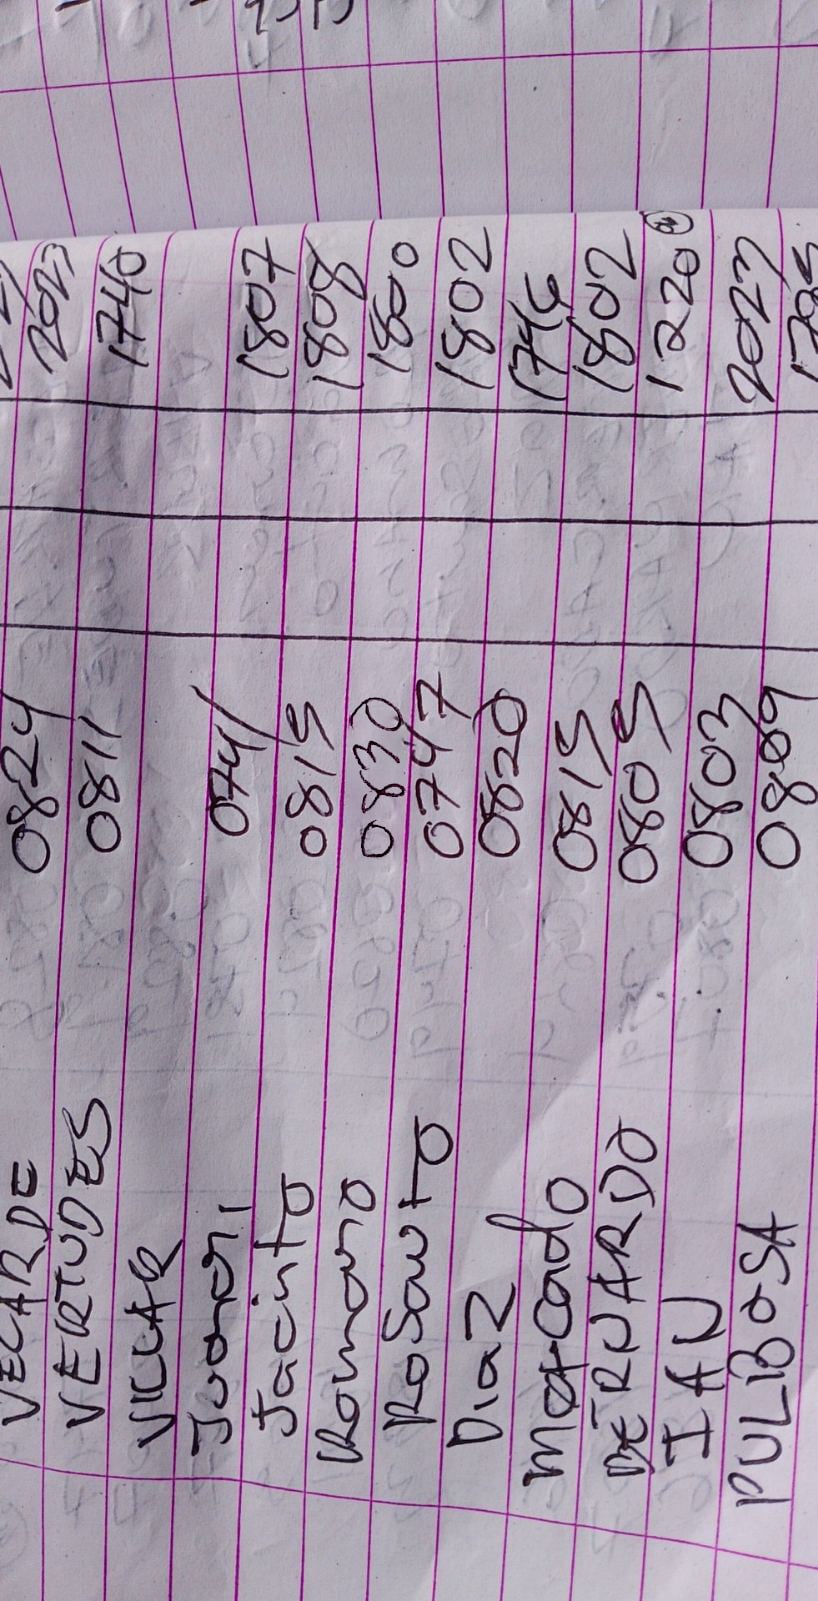 VELARDE 0824 2023
VERTUDES 0811 1740
VILLAR
0741 1807
Jacinto 0815 1808
Romano 0830 1800
Rosauto 0747 1802
Diaz 0820 1746
Mercado 0815 1802
BERNARDO 0805 1220
IAN 0803 2023
PULIBOSA 0809